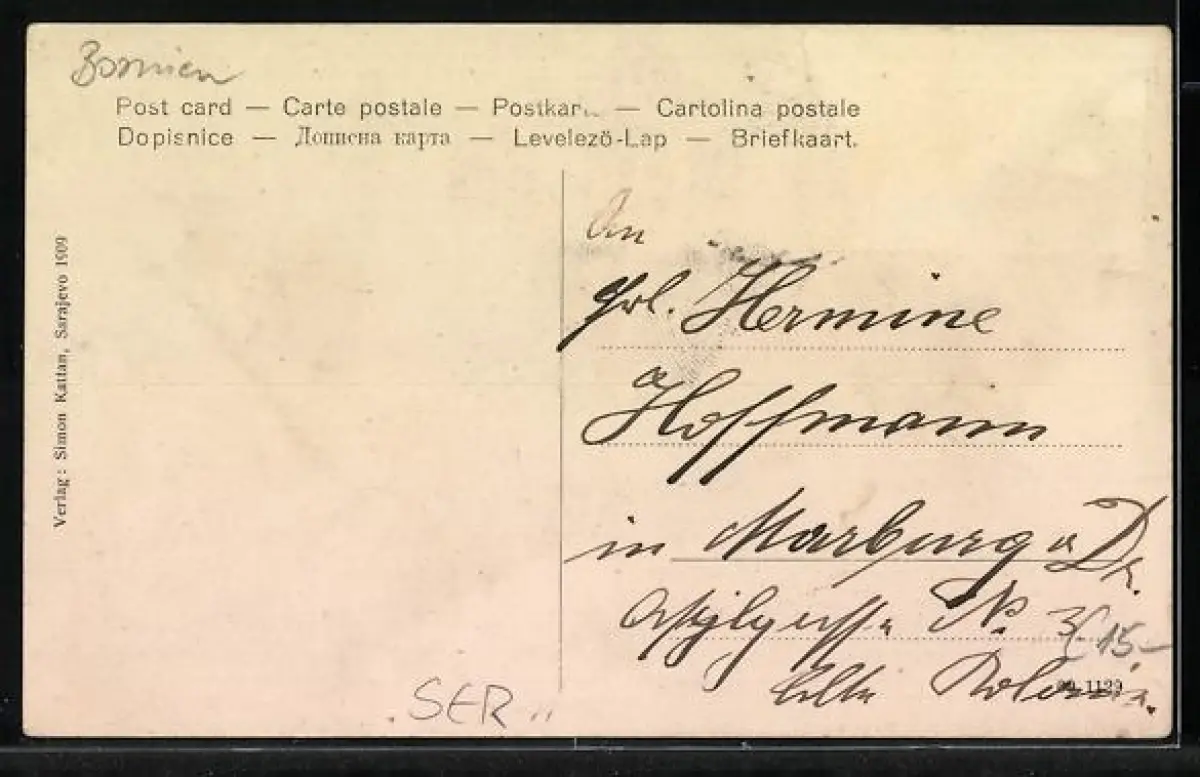 Bosnien
Post card — Carte postale — Postkar — Cartolina postale
Dopisnice — Дописна карта — Levelező-Lap — Briefkaart.
Verlag: Simon Kattan, Sarajevo 1909
An
Frl. Hermine
Hoffmann
in Marburg a Dr.
No. 3
15-
1129
SER